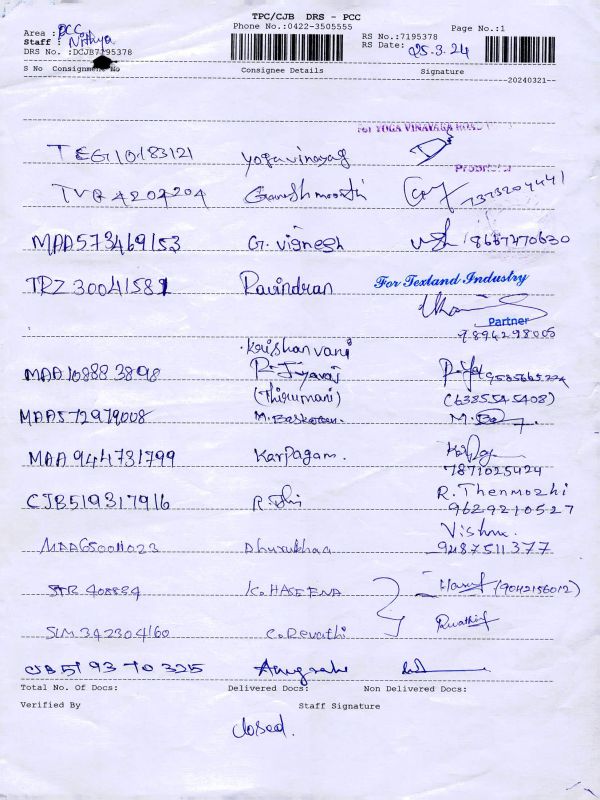 TPC/CJB DRS - PCC
Phone No.:0422-3505555
Page No.:1
Area : PCC
Staff : Nithya
DRS No. :DCJB7195378
RS No.:7195378
RS Date: 25.3.24
S No Consignment No Consignee Details Signature
20240321
For YOGA VINAYAGA ROAD
TEG10183121 yogavinayag
TVQ4204204 Ganeshmoorthi 7373204441
MAA573469153 G. vignesh 8667270630
TRZ30041581 Ravindran For Texland Industry
Partner
9894298005
Krishanvani
MAA108883898
(Thirumani) (6385545408)
MAA572979008 M. Baskaran. M. Ba
MAA944731799 Karpagam.
7871025424
CJB519317916 R. Thenmozhi
9629210527
Vishnu
MAA650011023 Dhurukhaa 9487511377
STR 408884 K. HASEENA (9042156012)
SLM342304160 C. Revathi Revathi
CJB519370325
Total No. Of Docs: Delivered Docs: Non Delivered Docs:
Verified By Staff Signature
Closed.